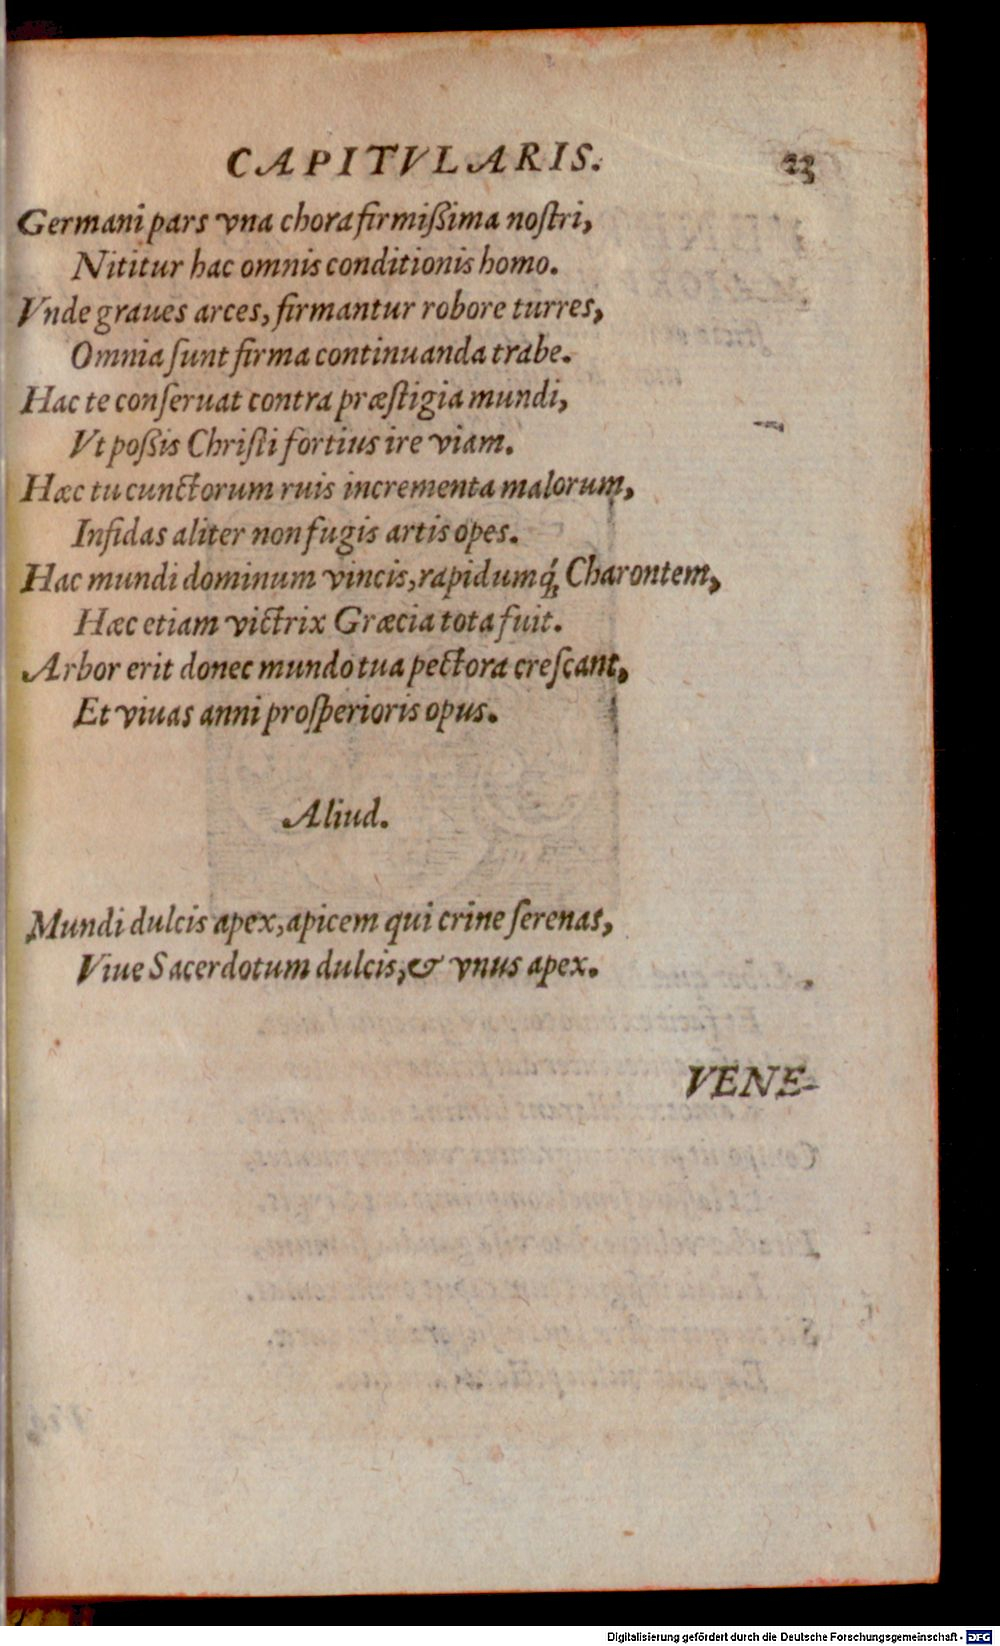 CAPITVLARIS. 23
Germani pars vna chora firmißima noſtri,
Nititur hac omnis conditionis homo.
Vnde graues arces, firmantur robore turres,
Omnia ſunt firma continuanda trabe.
Hac te conſeruat contra præſtigia mundi,
Vt poßis Chriſti fortius ire viam.
Hæc tu cunctorum ruis incrementa malorum,
Infidas aliter non fugis artis opes.
Hac mundi dominum vincis, rapidumq́; Charontem,
Hæc etiam victrix Græcia tota fuit.
Arbor erit donec mundo tua pectora creſcant,
Et viuas anni proſperioris opus.
Aliud.
Mundi dulcis apex, apicem qui crine ſerenas,
Viue Sacerdotum dulcis, & vnus apex.
VENE-
Digitalisierung gefördert durch die Deutsche Forschungsgemeinschaft - DFG